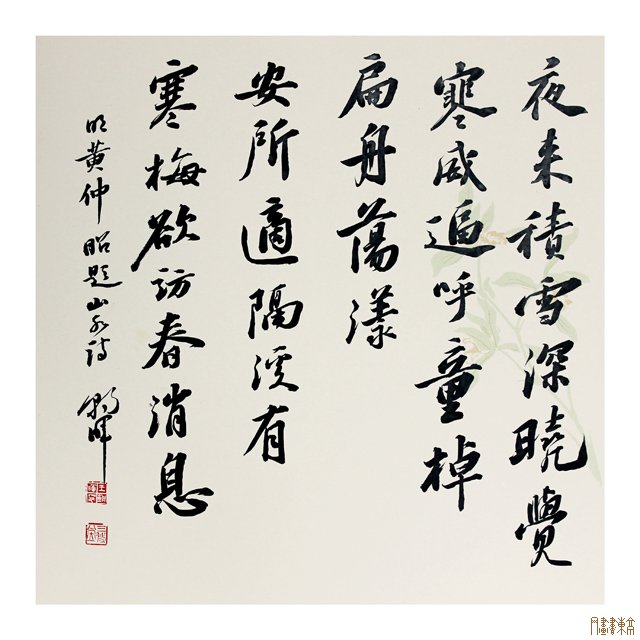 夜来積雪深曉覺
寒威逼呼童棹
扁舟蕩漾
安所適隔溪有
寒梅欲訪春消息
明黄仲昭題山水詩